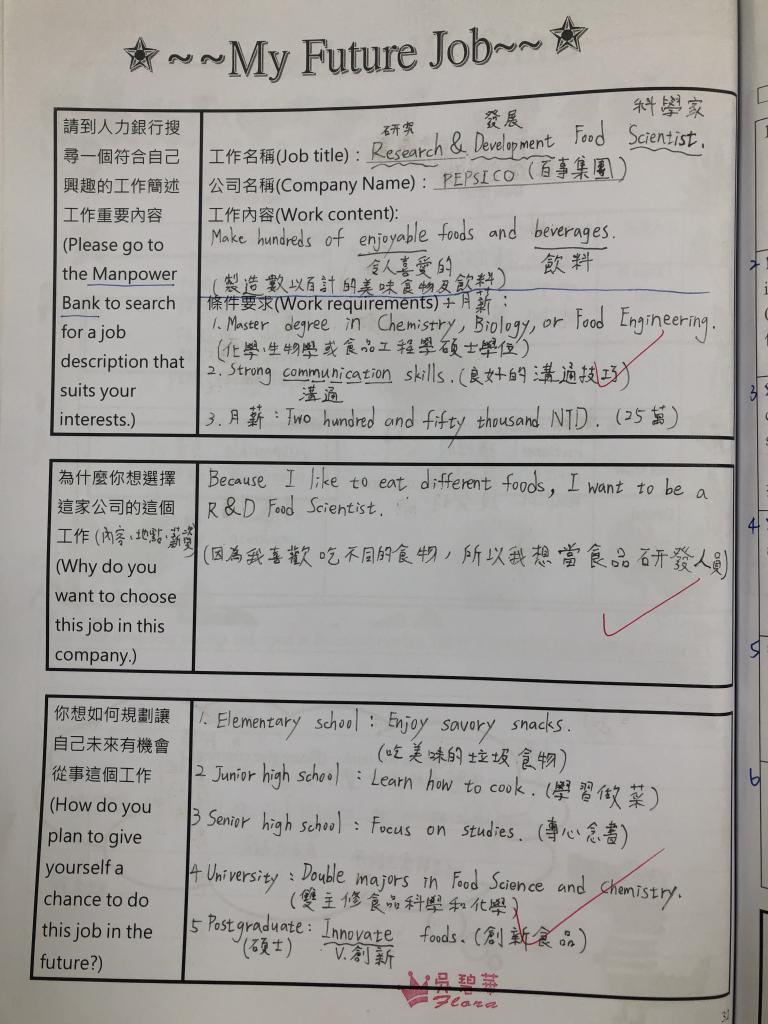 ~~My Future Job~~
請到人力銀行搜
尋一個符合自己
興趣的工作簡述
工作重要內容
(Please go to
the Manpower
Bank to search
for a job
description that
suits your
interests.)
研究 發展 科學家
工作名稱(Job title)：Research & Development Food Scientist.
公司名稱(Company Name)：PEPSICO (百事集團)
工作內容(Work content):
Make hundreds of enjoyable foods and beverages.
令人喜愛的 飲料
(製造數以百計的美味食物及飲料)
條件要求(Work requirements)+月薪：
1. Master degree in Chemistry, Biology, or Food Engineering.
(化學、生物學或食品工程學碩士學位)
2. Strong communication skills. (良好的溝通技巧)
溝通
3. 月薪：Two hundred and fifty thousand NTD. (25萬)
為什麼你想選擇
這家公司的這個
工作(內容、地點、薪資)
(Why do you
want to choose
this job in this
company.)
Because I like to eat different foods, I want to be a
R&D Food Scientist.
(因為我喜歡吃不同的食物，所以我想當食品研發人員)
你想如何規劃讓
自己未來有機會
從事這個工作
(How do you
plan to give
yourself a
chance to do
this job in the
future?)
1. Elementary school：Enjoy savory snacks.
(吃美味的垃圾食物)
2 Junior high school：Learn how to cook. (學習做菜)
3 Senior high school：Focus on studies. (專心念書)
4 University：Double majors in Food Science and Chemistry.
(雙主修食品科學和化學)
5 Postgraduate：Innovate foods. (創新食品)
(碩士) V.創新
吳碧華
Flora
2
3
4
5
6